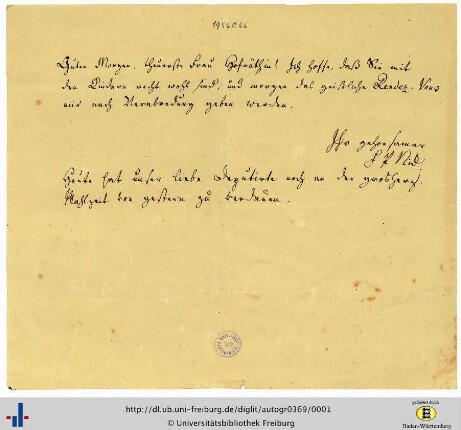 1956/366
Guten Morgen, theuerste Frau Hofräthin! Ich hoffe, daß Sie mit
den Kindern recht wohl sind, und morgen das geistliche Rendez-Vous
mir nach Verabredung geben werden.
Ihr gehorsamer
Heute hat unser liebe Deputirte noch an der großherz.
Mahlzeit von gestern zu verdauen.
http://dl.ub.uni-freiburg.de/diglit/autogr0369/0001
© Universitätsbibliothek Freiburg
gefördert durch
Baden-Württemberg